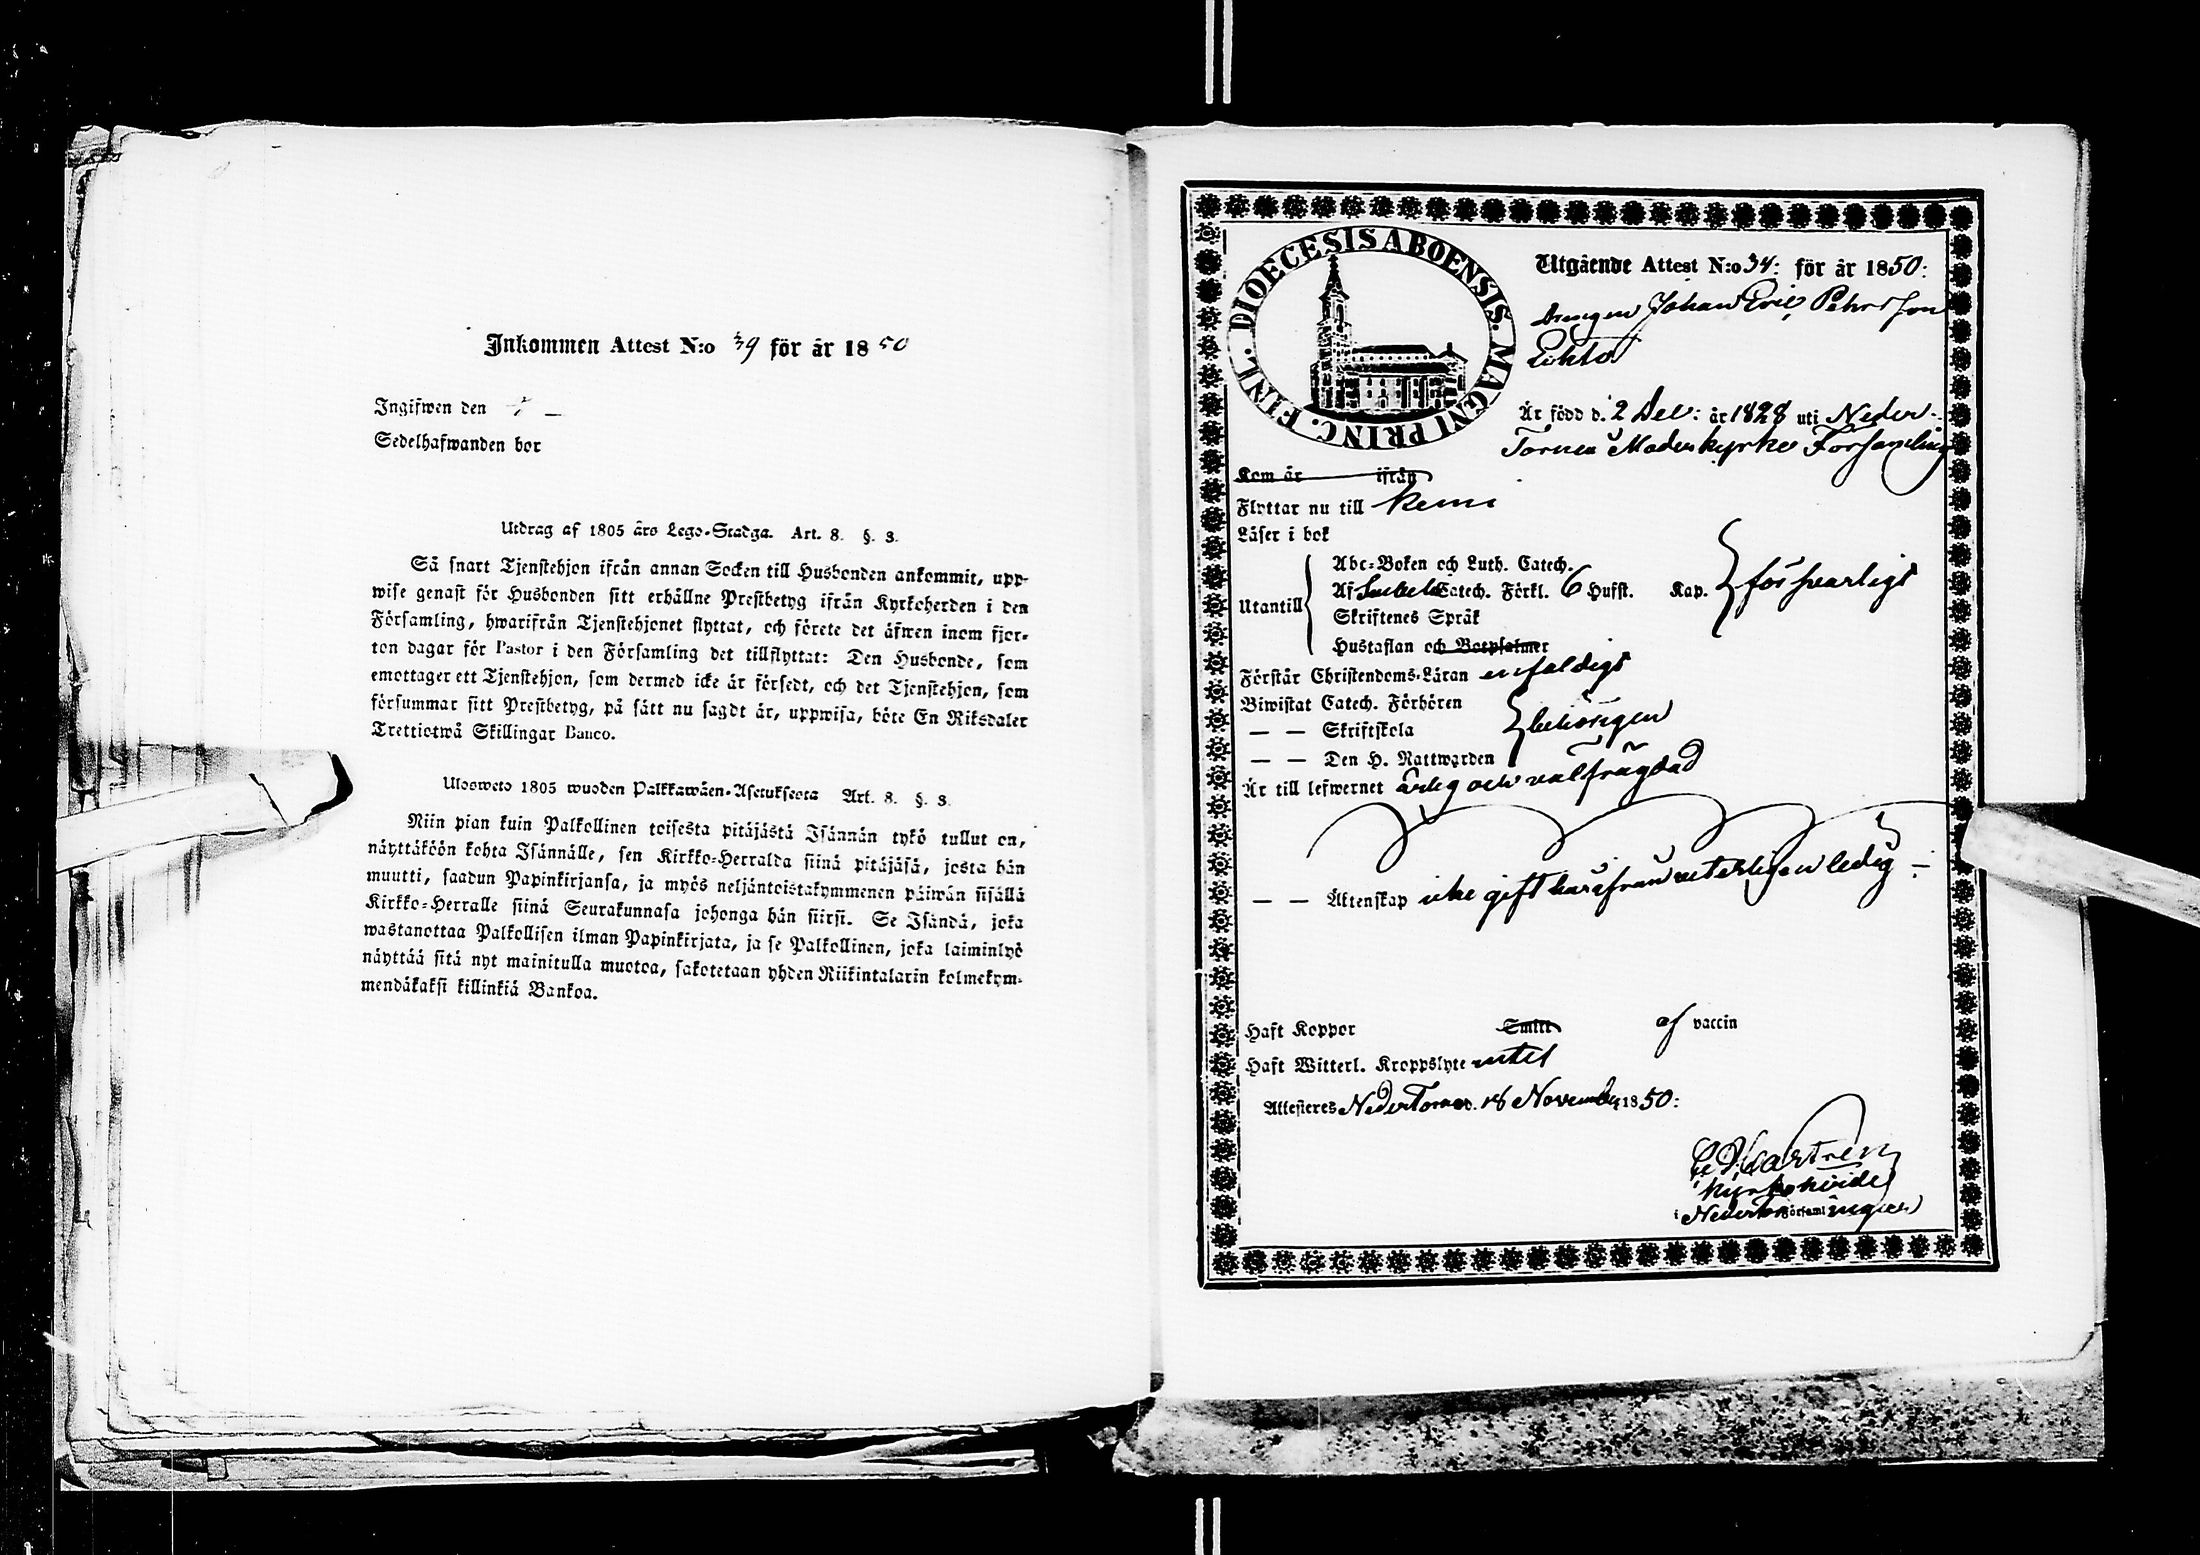 Inkommen Attest N:o 39 för år 1850
Ingifwen den
Sedelhafwanden bor
Utdrag af 1805 års Lego-Stadga. Art. 8. §. 3.
Så snart Tjenstehjon ifrån annan Socken till Husbonden ankommit, upp-
wise genast för Husbonden sitt erhållne Prestbetyg ifrån Kyrkoherden i den
Församling, hwarifrån Tjenstehjonet flyttat, och förete det äfwen inom fjor-
ton dagar för Pastor i den Församling det tillflyttat: Den Husbonde, som
emottager ett Tjenstehjon, som dermed icke är försedt, och det Tjenstehjon, som
försummar sitt Prestbetyg, på sätt nu sagdt är, uppwisa, böte En Riksdaler
Trettiotwå Skillingar Banco.
Ulosweto 1805 wuoden Palkkawäen-Asetuksesta Art. 8. §. 3.
Niin pian kuin Palkollinen toisesta pitäjästä Isännän tykö tullut on,
näyttäköön kohta Isännälle, sen Kirkko-Herralda siinä pitäjäsä, josta hän
muutti, saadun Papinkirjansa, ja myös neljäntoistakymmenen päiwän sisällä
Kirkko-Herralle siinä Seurakunnasa johonga hän siirsi. Se Isändä, joka
wastanottaa Palkollisen ilman Papinkirjata, ja se Palkollinen, joka laiminlyö
näyttää sitä nyt mainitulla muotoa, sakotetaan yhden Riikintalarin kolmekym-
mendäkaksi killinkiä Bankoa.
FINL. DIOECESIS ABOENSIS. MAGNI PRINC.
Utgående Attest N:o 34: för år 1850:
Drengen Johan Eric Pehrsson
Är född d. 2 Dec: år 1828 uti Neder-
Torneå Moderkyrko Församling
Kom år ifrån
Flyttar nu till Kemi
Läser i bok
Utantill
Abc-Boken och Luth. Catech.
Af Catech. Förkl. 6 Hufst. Kap. försvarligt
Skriftenes Språk
Hustaflan och Botpsalmer
Förstår Christendoms-Läran enfaldigt
Biwistat Catech. Förhören
— — Skriftskola behörigen
— — Den H. Nattwarden
Är till lefwernet ärlig och välfrägdad
— — Äktenskap icke gift härifrån veterligen ledig
Haft Koppor Smitt af vaccin
Haft Witterl. Kroppslyte intet
Attesteras Neder Torneå d. 18 November 1850:
Kyrkoherde
i Neder Församlingen